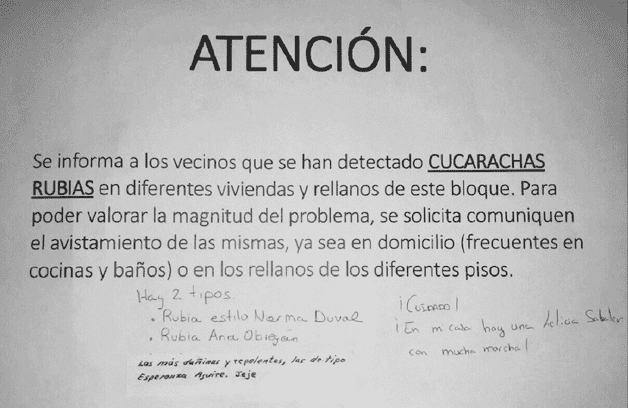 ATENCIÓN:
Se informa a los vecinos que se han detectado CUCARACHAS
RUBIAS en diferentes viviendas y rellanos de este bloque. Para
poder valorar la magnitud del problema, se solicita comuniquen
el avistamiento de las mismas, ya sea en domicilio (frecuentes en
cocinas y baños) o en los rellanos de los diferentes pisos.
Hay 2 tipos
• Rubia estilo Norma Duval
• Rubia Ana Obregón
Las más dañinas y repelentes, las de tipo
Esperanza Aguirre. Jeje
¡CUIDADO!
¡En mi casa hay una Leticia Sabater
con mucha marcha!